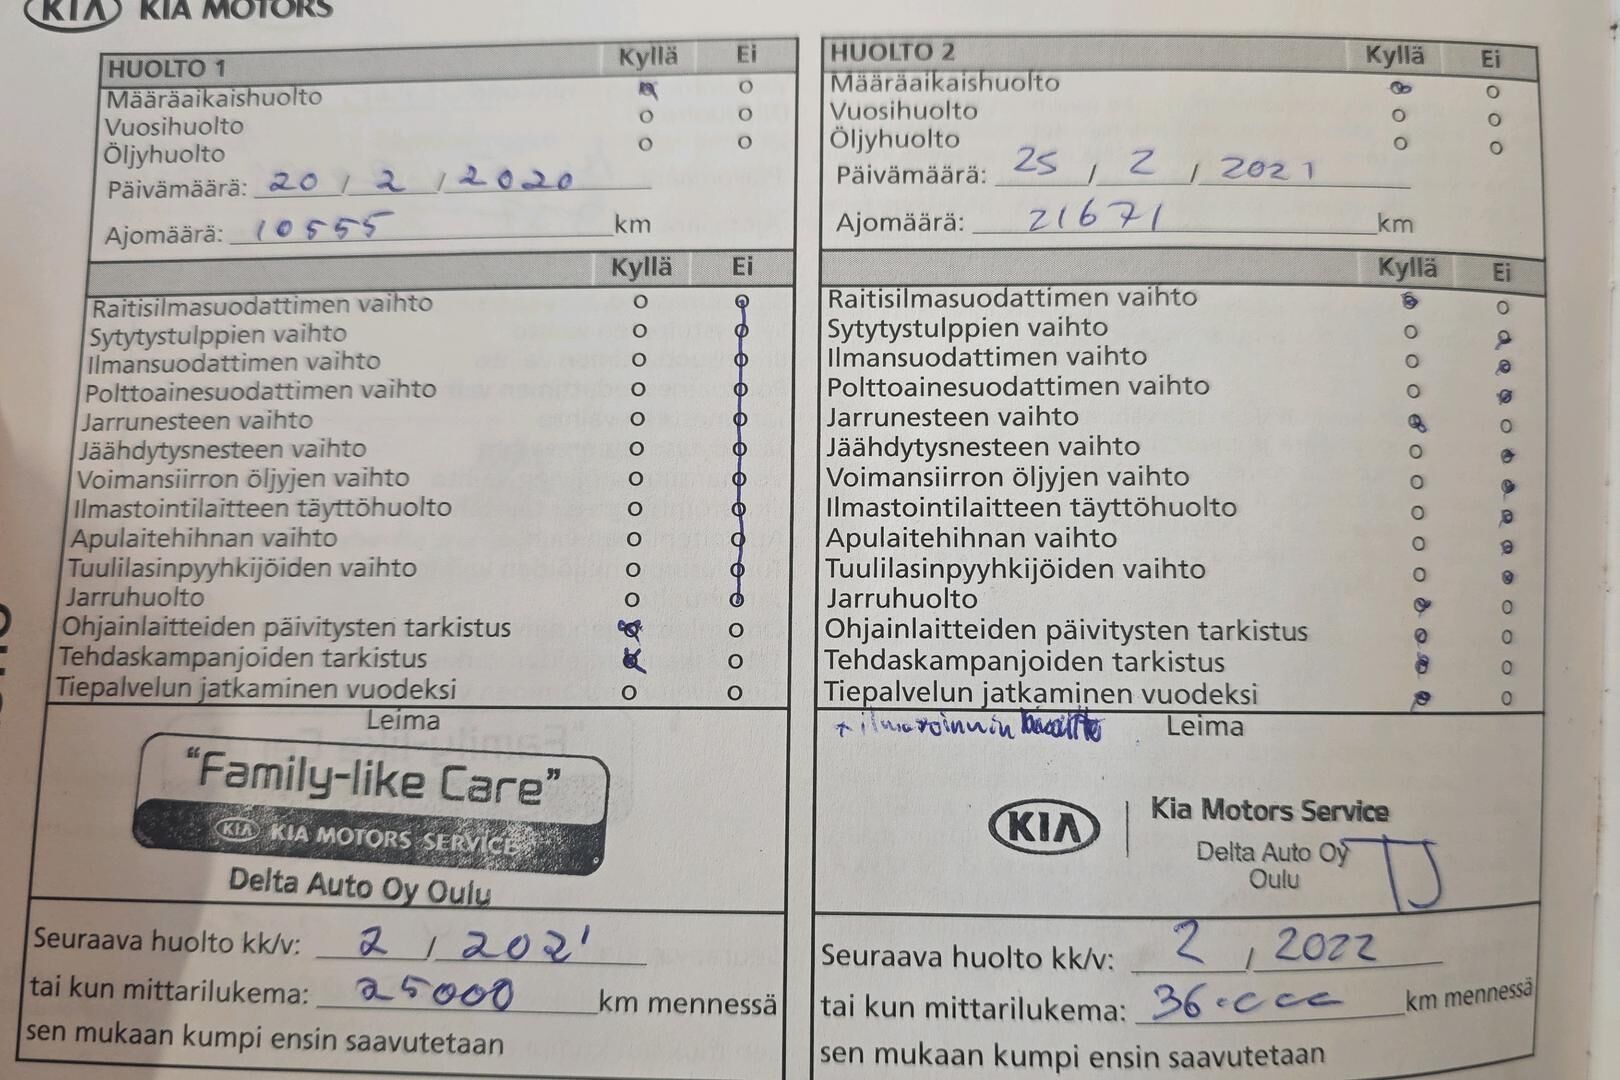 KIA KIA MOTORS
HUOLTO 1 Kyllä Ei
Määräaikaishuolto
Vuosihuolto
Öljyhuolto
Päivämäärä: 20 / 2 / 2020
Ajomäärä: 10555 km
Kyllä Ei
Raitisilmasuodattimen vaihto
Sytytystulppien vaihto
Ilmansuodattimen vaihto
Polttoainesuodattimen vaihto
Jarrunesteen vaihto
Jäähdytysnesteen vaihto
Voimansiirron öljyjen vaihto
Ilmastointilaitteen täyttöhuolto
Apulaitehihnan vaihto
Tuulilasinpyyhkijöiden vaihto
Jarruhuolto
Ohjainlaitteiden päivitysten tarkistus
Tehdaskampanjoiden tarkistus
Tiepalvelun jatkaminen vuodeksi
Leima
"Family-like Care"
KIA KIA MOTORS SERVICE
Delta Auto Oy Oulu
Seuraava huolto kk/v: 2 / 2021
tai kun mittarilukema: 25000 km mennessä
sen mukaan kumpi ensin saavutetaan
HUOLTO 2 Kyllä Ei
Määräaikaishuolto
Vuosihuolto
Öljyhuolto
Päivämäärä: 25 / 2 / 2021
Ajomäärä: 21671 km
Kyllä Ei
Raitisilmasuodattimen vaihto
Sytytystulppien vaihto
Ilmansuodattimen vaihto
Polttoainesuodattimen vaihto
Jarrunesteen vaihto
Jäähdytysnesteen vaihto
Voimansiirron öljyjen vaihto
Ilmastointilaitteen täyttöhuolto
Apulaitehihnan vaihto
Tuulilasinpyyhkijöiden vaihto
Jarruhuolto
Ohjainlaitteiden päivitysten tarkistus
Tehdaskampanjoiden tarkistus
Tiepalvelun jatkaminen vuodeksi
+ ilmavoinnin Leima
KIA Kia Motors Service
Delta Auto Oy TJ
Oulu
Seuraava huolto kk/v: 2 / 2022
tai kun mittarilukema: 36.000 km mennessä
sen mukaan kumpi ensin saavutetaan